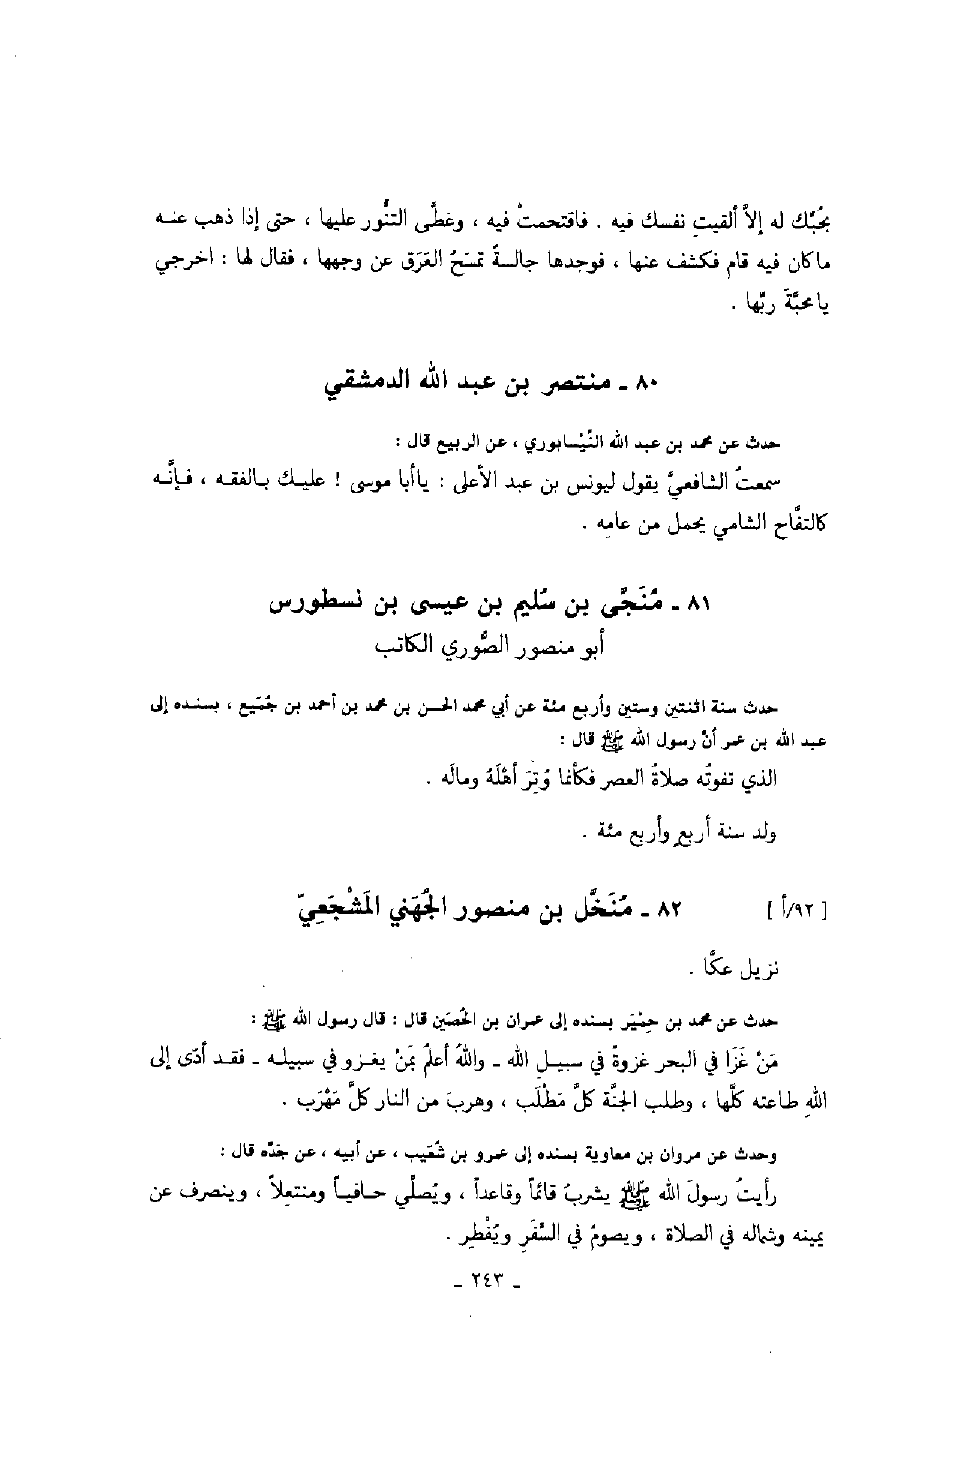 بحُبِّك له إلاَّ ألقيتِ نفسك فيه . فاقتحمتْ فيه ، وغطَّى التنُّور عليها ، حتى إذا ذهب عنه
ما كان فيه قام فكشف عنها ، فوجدها جالسةً تمسَحُ العَرَق عن وجهها ، فقال لها : اخرجي
يا محبَّةَ ربِّها .
٨٠ ـ منتصر بن عبد الله الدمشقي
حدث عن محمد بن عبد الله النَّيْسابوري ، عن الربيع قال :
سمعتُ الشافعيَّ يقول ليونس بن عبد الأعلى : ياأبا موسى ! عليك بالفقه ، فإنَّه
كالتفَّاح الشامي يحمل من عامِه .
٨١ ـ مُنَجَّى بن سُليم بن عيسى بن نسطورس
أبو منصور الصُّوري الكاتب
حدث سنة اثنتين وستين وأربع مئة عن أبي محمد الحسن بن محمد بن أحمد بن جُمَيع ، بسنده إلى
عبد الله بن عمر أنَّ رسول الله ﷺ قال :
الذي تفوتُه صلاةُ العصر فكأنما وُتِرَ أهْلَهُ ومالَه .
ولد سنة أربعٍ وأربع مئة .
[ ٩٢/أ ] ٨٢ ـ مُنَخَّل بن منصور الجُهَني المَشْجَعِيّ
نزيل عكَّا .
حدث عن محمد بن حِمْيَر بسنده إلى عمران بن الحُصَين قال : قال رسول الله ﷺ :
مَنْ غَزَا في البحر غزوةً في سبيلِ الله ـ واللهُ أعلمُ بمَنْ يغزو في سبيله ـ فقد أدّى إلى
اللهِ طاعته كلَّها ، وطلب الجنَّة كلَّ مَطْلَب ، وهربَ من النار كلَّ مَهْرَب .
وحدث عن مروان بن معاوية بسنده إلى عمرو بن شُعَيب ، عن أبيه ، عن جَدِّه قال :
رأيتُ رسولَ الله ﷺ يشربُ قائماً وقاعداً ، ويُصلِّي حافياً ومنتعِلاً ، وينصرف عن
يمينه وشماله في الصلاة ، ويصومُ في السَّفَرِ ويُفْطِر .
ـ ٢٤٣ ـ